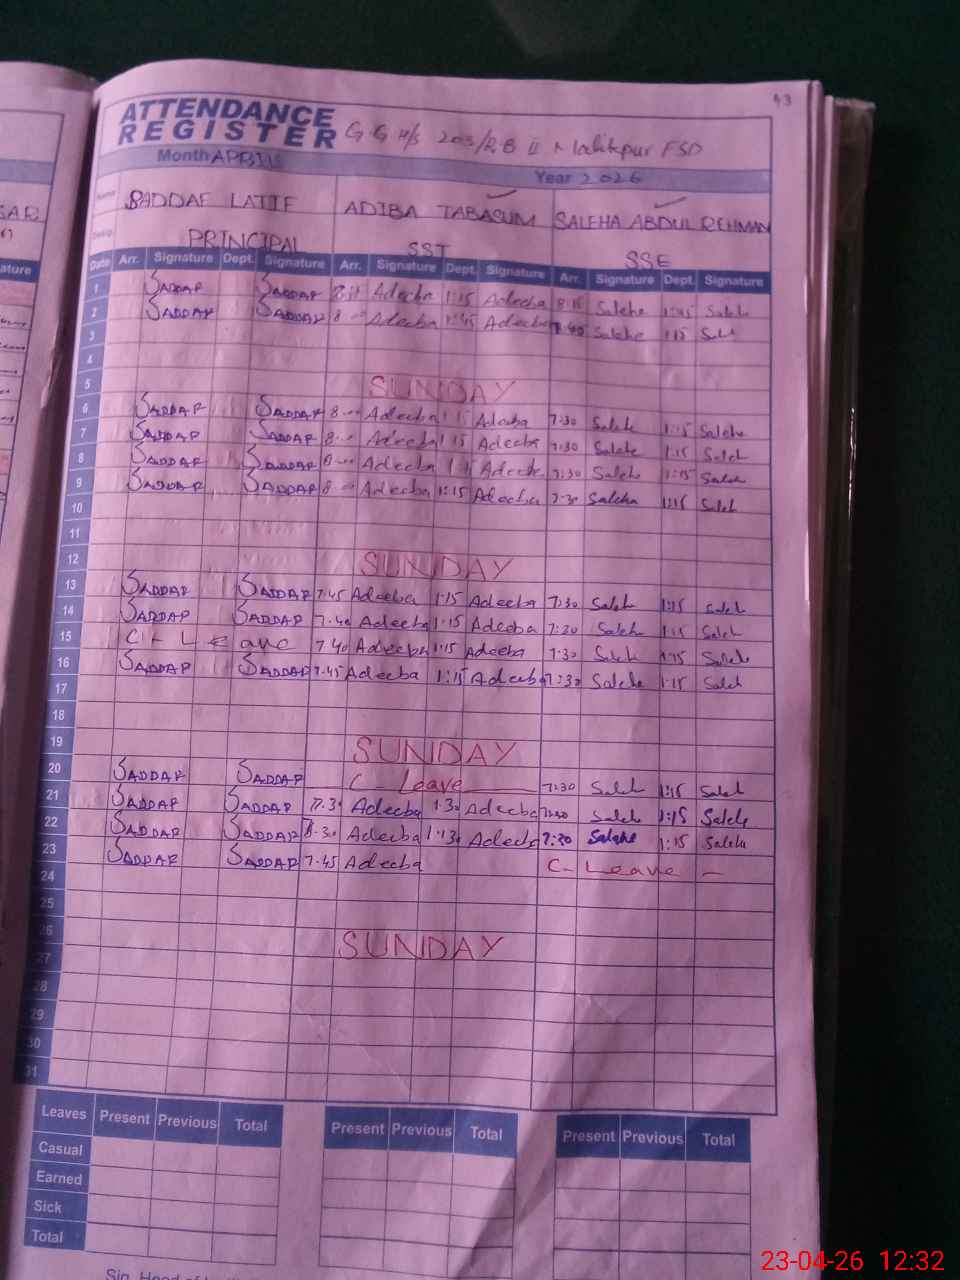 43
ATTENDANCE
REGISTER G.G H/S 203/R.B II Malikpur FSD
Month APRIL Year 2026
SAR
Name SADDAF LATIF ADIBA TABASUM SALEHA ABDUL REHMAN
Desig. PRINCIPAL SST SSE
ature
Date Arr. Signature Dept. Signature Arr. Signature Dept. Signature Arr. Signature Dept. Signature
1 SADDAF SADDAF Adeeba 1:15 Adeeba 8:15 Saleha Saleh
2 SADDAF SADDAF 8 Adeeba 1:45 Adeeba 7:40 Saleha 1:15 Sale
3
4
5 SUNDAY
6 SADDAF SADDAF 8:00 Adeeba 1:15 Adeeba 7:30 Saleh 1:15 Saleha
7 SADDAF SADDAF 8:00 Adeeba 1:15 Adeeba 7:30 Saleha 1:15 Saleh
8 SADDAF SADDAF 8:00 Adeeba 1:15 Adeeba 7:30 Saleh 1:15 Saleh
9 SADDAF SADDAF 8:00 Adeeba 1:15 Adeeba 7:30 Saleha 1:15 Saleh
10
11
12 SUNDAY
13 SADDAF SADDAF 7:45 Adeeba 1:15 Adeeba 7:30 Saleh 1:15 Saleh
14 SADDAF SADDAF 7:40 Adeeba 1:15 Adeeba 7:20 Saleh 1:15 Saleh
15 C - Leave 7:40 Adeeba 1:15 Adeeba 7:30 Saleh 1:15 Saleha
16 SADDAF SADDAF 7:45 Adeeba 1:15 Adeeba 7:30 Saleha 1:15 Saleh
17
18
19 SUNDAY
20 SADDAF SADDAF C Leave 7:30 Saleh 1:15 Saleh
21 SADDAF SADDAF 7:30 Adeeba 1:30 Adeeba Saleh 1:15 Saleh
22 SADDAF SADDAF 8:30 Adeeba 1:30 Adeeba 7:20 Saleha 1:15 Saleha
23 SADDAF SADDAF 7:45 Adeeba C- Leave -
24
25
26 SUNDAY
27
28
29
30
31
Leaves Present Previous Total Present Previous Total Present Previous Total
Casual
Earned
Sick
Total
Sig. Head of
23-04-26 12:32